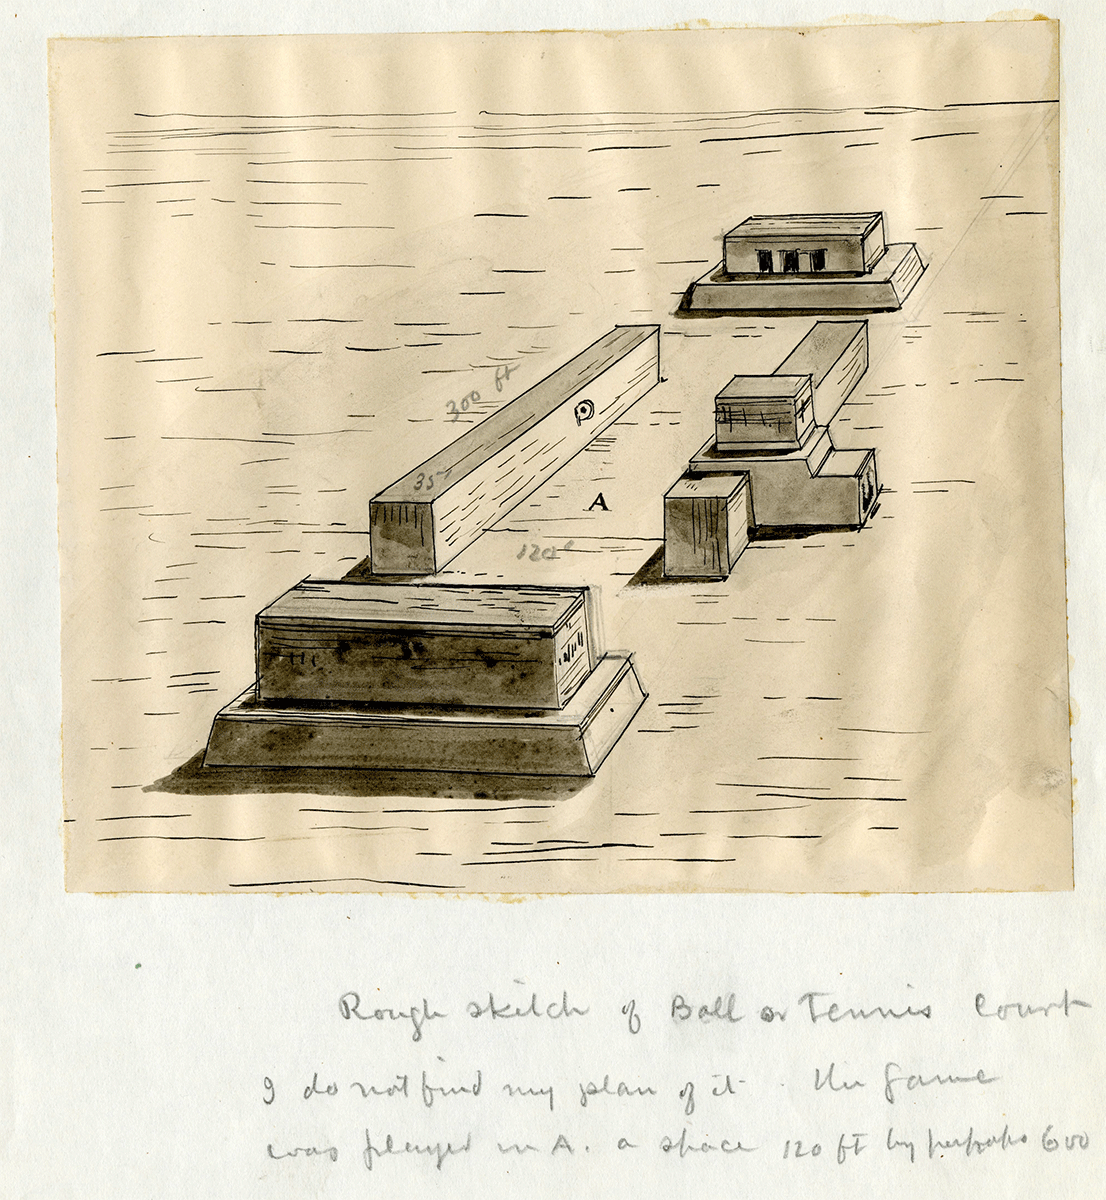 300 ft
35
A
120
Rough sketch of Ball or Tennis Court
I do not find my plan of it. The game
was played in A. a space 120 ft by perhaps 600